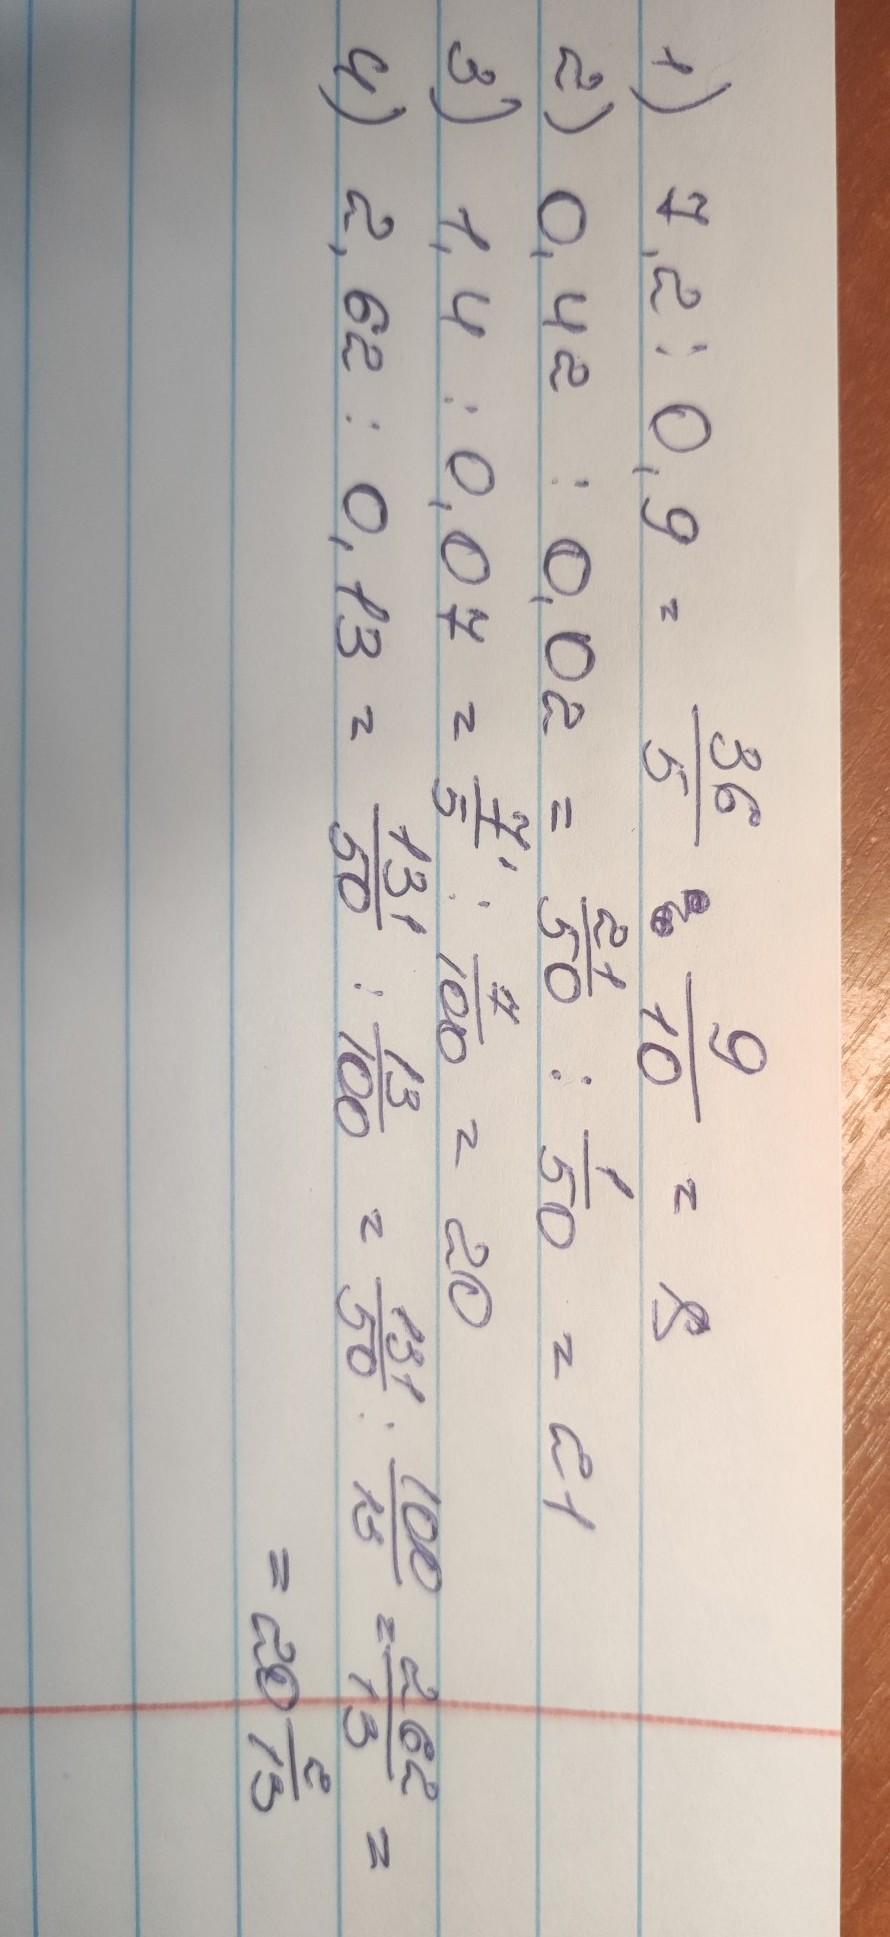 1) 7,2 : 0,9 = 36/5 : 9/10 = 8
2) 0,42 : 0,02 = 21/50 : 1/50 = 21
3) 1,4 : 0,07 = 7/5 : 7/100 = 20
4) 2,62 : 0,13 = 131/50 : 13/100 = 131/50 · 100/13 = 262/13 =
= 20 2/13